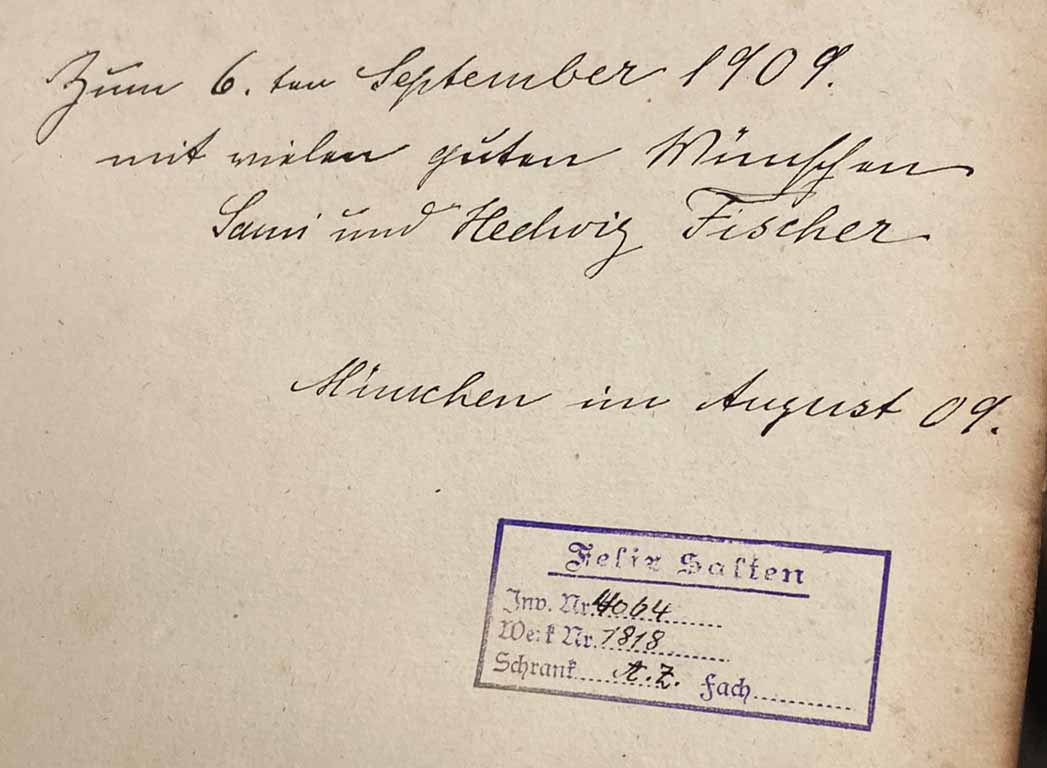 Zum 6. ten September 1909.
mit vielen guten Wünschen
Sami und Hedwig Fischer
München im August 09.
Felix Salten
Inv. Nr. 4064
Werk Nr. 1818
Schrank A.Z. Fach